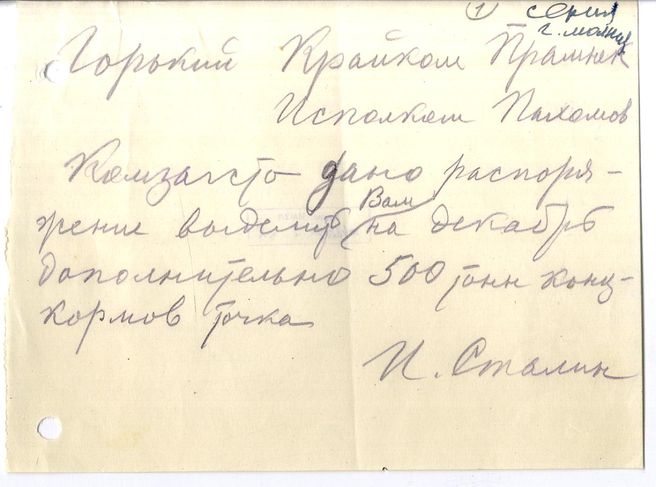 ① серия
г. молния
Горький Крайком Прамнек
Исполком Пахомов
Комзагсто дано распоря-
Вам
жение выделить на декабрь
дополнительно 500 тонн конц-
кормов точка
И. Сталин